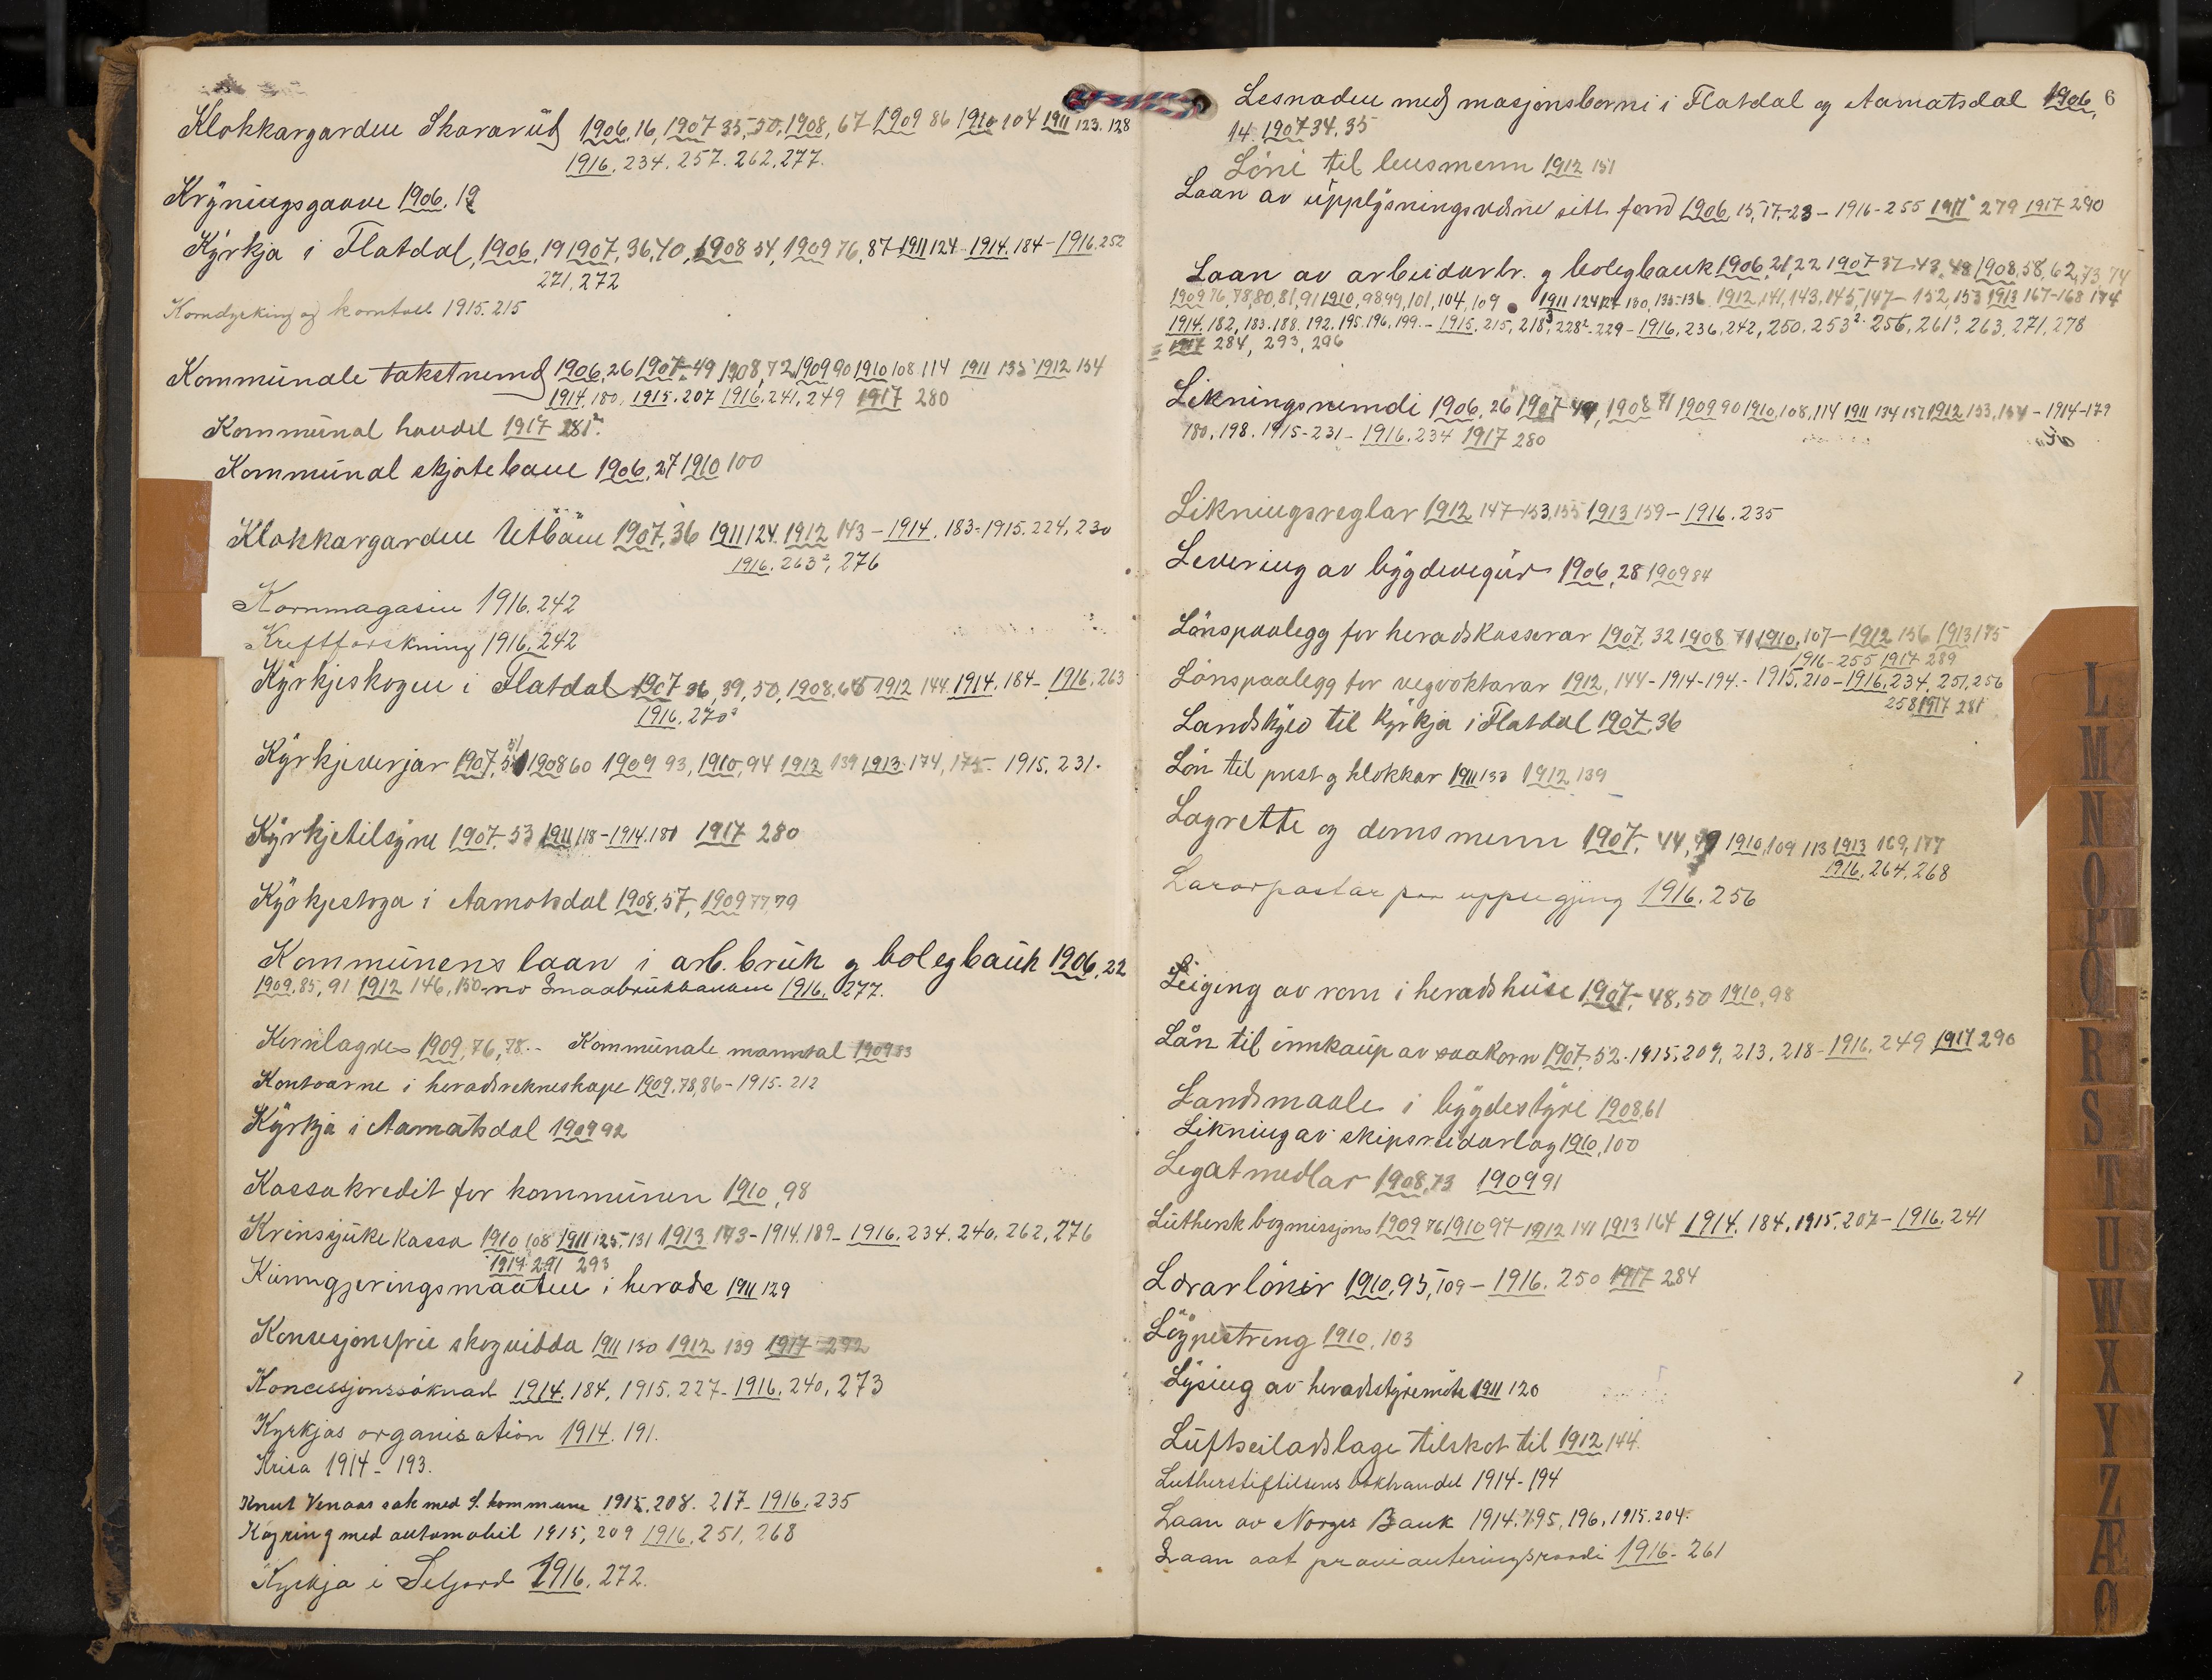 Klokkargarden Skararüd 1906, 16, 1907 35, 50, 1908, 67 1909 86 1910 104 1911 123. 128
1916, 234. 257. 262, 277.
Krÿningsgaave 1906. 19
Kÿrkja i Flatdal, 1906, 19 1907, 36, 40, 1908 54, 1909 76, 87 1911 124 - 1914. 184 - 1916. 252
271, 272
Korndyrking og korntoll 1915. 215
Kommünale takstnemd 1906, 26 1907-49 1908, 72, 1909 90 1910 108 114 1911 135 1912 154
1914, 180, 1915. 207 1916. 241, 249 1917 280
Kommünal handel 1917 281².
Kommünal skjøtebane 1906, 27 1910 100
Klokkargarden Utböen 1907, 36 1911 124. 1912 143 - 1914. 183 - 1915. 224, 230
1916. 263², 276
Kornmagasin 1916. 242
Kreftforskning 1916. 242
Kÿrkjeskogen i Flatdal 1907 36, 39, 50, 1908, 65 1912 144. 1914. 184 - 1916. 263
1916. 270²
Kÿrkjeverjar 1907, 51 1908 60 1909 93, 1910, 94 1912 139 1913 174, 175 - 1915. 231.
Kÿrkjetilsÿne 1907. 53 1911 118 - 1914. 180 1917 280
Kÿrkjestoga i Aamotsdal 1908, 57, 1909 77, 79
Kommünens laan i arb. brük og bolegbaük 1906, 22
1909. 85, 91 1912 146, 150 - no Smaabrükbanken 1916. 277.
Kornlagre 1909, 76, 78. - Kommünale manntal 1909 83
Kontoarne i heradsrekneskape 1909, 78, 86 - 1915. 212
Kÿrkja i Aamotsdal 1909 92
Kassakredit for kommünen 1910, 98
Krinsjükekassa 1910 108 1911 125, 131 1913 173 - 1914. 189 - 1916. 234. 240. 262, 276
1917 291 293
Künngjeringsmaaten i herade 1911 129
Konsesjonsfrie skogvidda 1911 130 1912 139 1917 292
Koncessjonssöknad 1914. 184, 1915. 227 - 1916. 240, 273
Kyrkjas organisation 1914. 191.
Krisa 1914 - 193.
Knut Venaas sak med S. kommune 1915, 208. 217 - 1916. 235
Köyring med automobil 1915, 209 1916. 251, 268
Kyrkja i Seljord 1916. 272.
Lesnaden med masjonsborni i Flatdal og Aamotsdal 1906, 6
14. 1907 34. 35
Löni til lensmenn 1912 151
Laan av üpplÿsningsvesne sitt fond 1906, 15, 17, 23 - 1916 - 255 1917 279 1917 290
Laan av arbeidarbr. og bolegbank 1906, 21, 22 1907 37 43, 48 1908, 58, 62, 73, 74
1909 76, 78, 80, 81, 91 1910, 98, 99, 101, 104, 109 1911 124, 127 130, 135-136 1912, 141, 143, 145, 147 - 152, 153 1913 167-168 174
1914. 182, 183. 188. 192. 195. 196. 199. - 1915. 215, 218³, 228² - 229 - 1916. 236, 242, 250. 253². 256, 261³, 263, 271, 278
1917 284, 293, 296
Likningsnemdi 1906, 26 1907 49, 1908 71 1909 90 1910, 108, 114 1911 134 137 1912 153, 154 - 1914 - 179
180, 198. 1915 - 231 - 1916. 234 1917 280
Likningsreglar 1912 147 - 153, 155 1913 159 - 1916. 235
Levering av bÿgdevegür 1906, 28 1909 84
Lönspaalegg for heradskasserar 1907, 32 1908 71 1910, 107 - 1912 156 1913 175
1916 - 255 1917 289
Lönspaalegg for vegvoktarar 1912, 144 - 1914 - 194. - 1915. 210 - 1916. 234. 251, 256
258 1917 281
Landskÿld til Kÿrkja i Flatdal 1907. 36
Lön til prest og klokkar 1911 133 1912, 139
Lagrette og domsmenn 1907, 44, 49 1910, 109 113 1913 169, 177
1916. 264, 268
Lærarpostar paa uppsegjing 1916. 256
Leiging av rom i heradshüse 1907, 48, 50 1910, 98
Lån til innkaüp av saakorn 1907, 52 - 1915. 209, 213, 218 - 1916. 249 1917 290
Landsmaale i bÿgdestÿre 1908, 61
Likning av skipsreidarlag 1910, 100
Legatmedlar 1908, 73 1909 91
Lüthersk bogmissjons 1909 76 1910 97 - 1912 141 1913 164 1914. 184, 1915, 207 - 1916. 241
Lærarlönir 1910, 95, 109 - 1916. 250 1917 284
Löÿpestreng 1910, 103
Lÿsing av heradstÿremöte 1911 120
Lüftseiladslage tilskot til 1912, 144.
Lutherstiftilsens bokhandel 1914 - 194
Laan av Norges Bank 1914. 195, 196, 1915. 204.
Laan aat provianteringsraadi 1916 - 261
L
M
N
O
P
Q
R
S
T
U
W
X
Y
Z
Æ
Ø